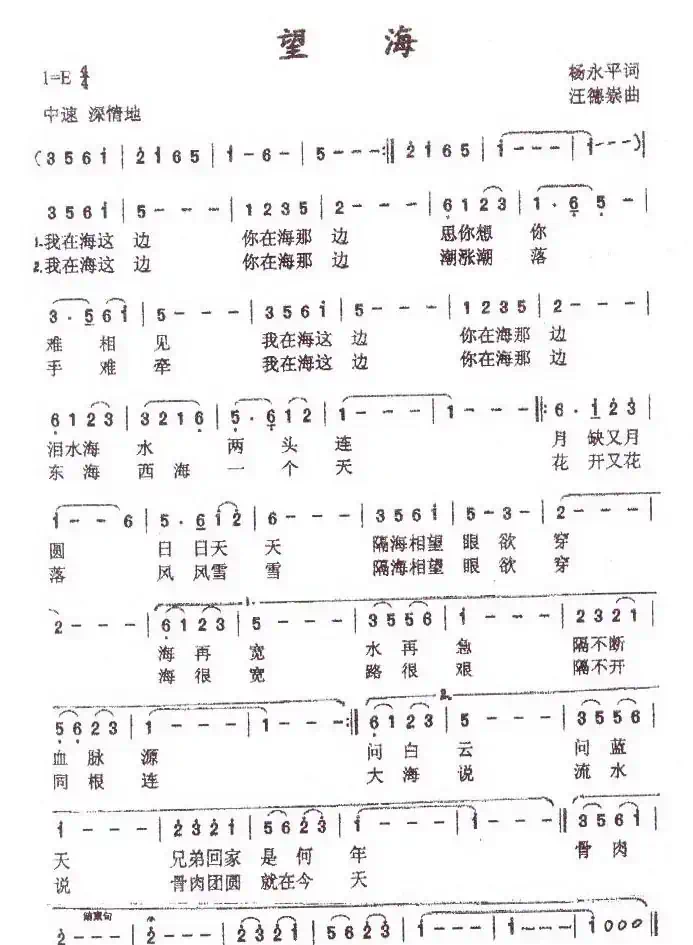 望 海
1=E 4/4
杨永平词
中速 深情地
汪德崇曲
(3 5 6 i | 2 i 6 5 | i - 6 - | 5 - - - :‖ 2 i 6 5 | i - - - | i - - - ) |
3 5 6 i | 5 - - - | 1 2 3 5 | 2 - - - | 6 1 2 3 | 1 · 6 5 - |
1.我在海这 边 你在海那 边 思你想 你
2.我在海这 边 你在海那 边 潮涨潮 落
3 · 5 6 i | 5 - - - | 3 5 6 i | 5 - - - | 1 2 3 5 | 2 - - - |
难 相 见 我在海这 边 你在海那 边
手 难 牵 我在海这 边 你在海那 边
6 1 2 3 | 3 2 1 6 | 5 · 6 1 2 | 1 - - - | 1 - - - ‖: 6 · i 2 3 |
泪水海 水 两 头 连 月 缺又月
东海 西 海 一 个 天 花 开又花
i - - 6 | 5 · 6 i 2 | 6 - - - | 3 5 6 i | 5 - 3 - | 2 - - - |
圆 日 日天 天 隔海相望 眼 欲 穿
落 风 风雪 雪 隔海相望 眼 欲 穿
1.
2 - - - | 6 1 2 3 | 5 - - - | 3 5 5 6 | i - - - | 2 3 2 1 |
海 再 宽 水 再 急 隔不断
海 很 宽 路 很 艰 隔不开
2.
5 6 2 3 | 1 - - - | 1 - - - :‖ 6 1 2 3 | 5 - - - | 3 5 5 6 |
血 脉 源 问 白 云 问 蓝
同 根 连 大 海 说 流 水
i - - - | 2 3 2 i | 5 6 2 3 | i - - - | i - - - ‖ 3 5 6 i |
天 兄弟回家 是 何 年 骨 肉
说 骨肉团圆 就在今 天
结束句
2 - - - | 2 - - - | 2 3 2 i | 5 6 2 3 | i - - - | i - - - | i 0 0 0 ‖